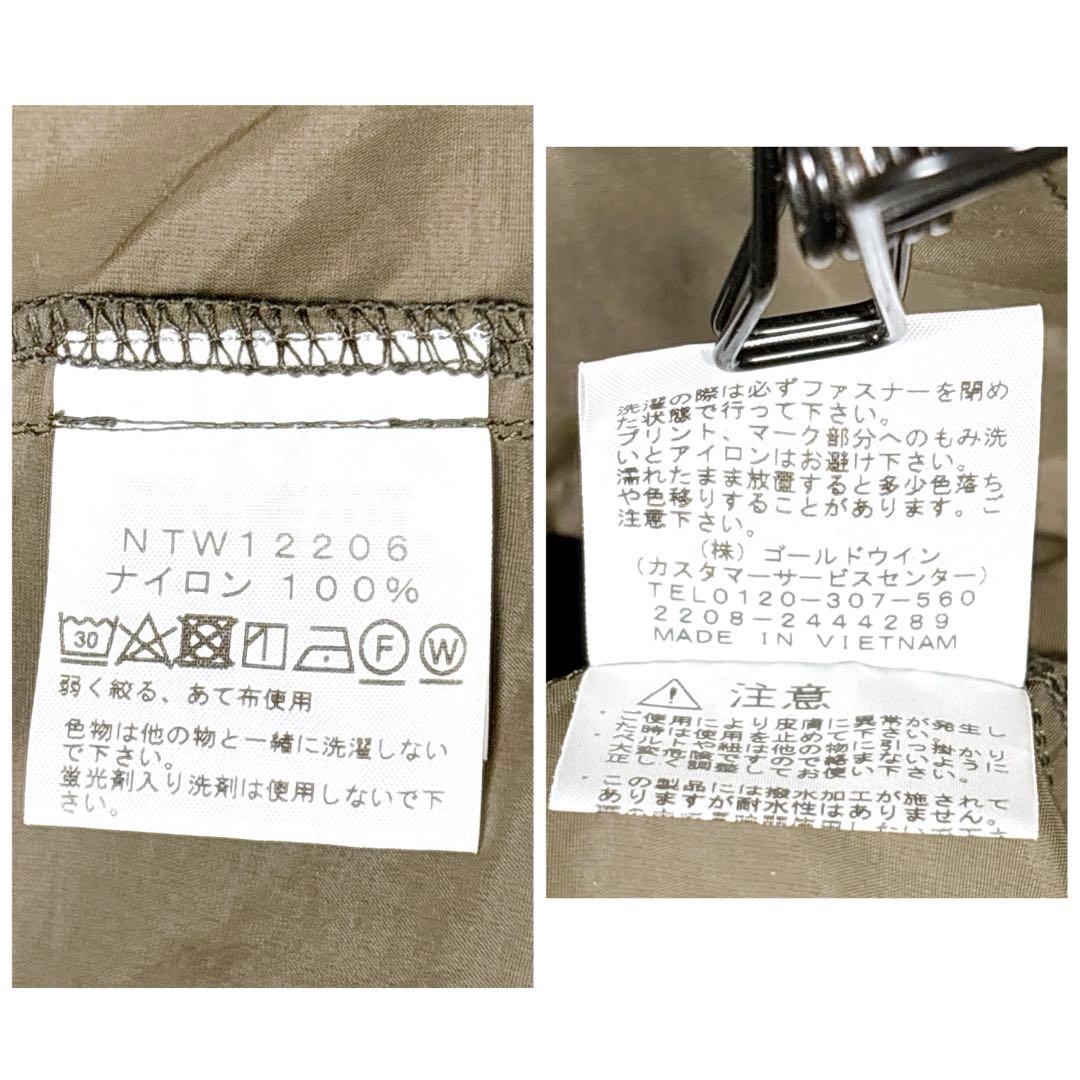 NTW12206
ナイロン 100%
30
F
W
弱く絞る、あて布使用
色物は他の物と一緒に洗濯しない
で下さい。
蛍光剤入り洗剤は使用しないで下
さい。
洗濯の際は必ずファスナーを閉め
た状態で行って下さい。
プリント、マーク部分へのもみ洗
いとアイロンはお避け下さい。
濡れたまま放置すると多少色落ち
や色移りすることがあります。ご
注意下さい。
(株) ゴールドウイン
(カスタマーサービスセンター)
TEL0120-307-560
2208-2444289
MADE IN VIETNAM
注意
・ご使用により皮膚に異常が発生し
た時は使用を止めて下さい。
この製品には撥水加工が施されて
ありますが耐水性はありません。